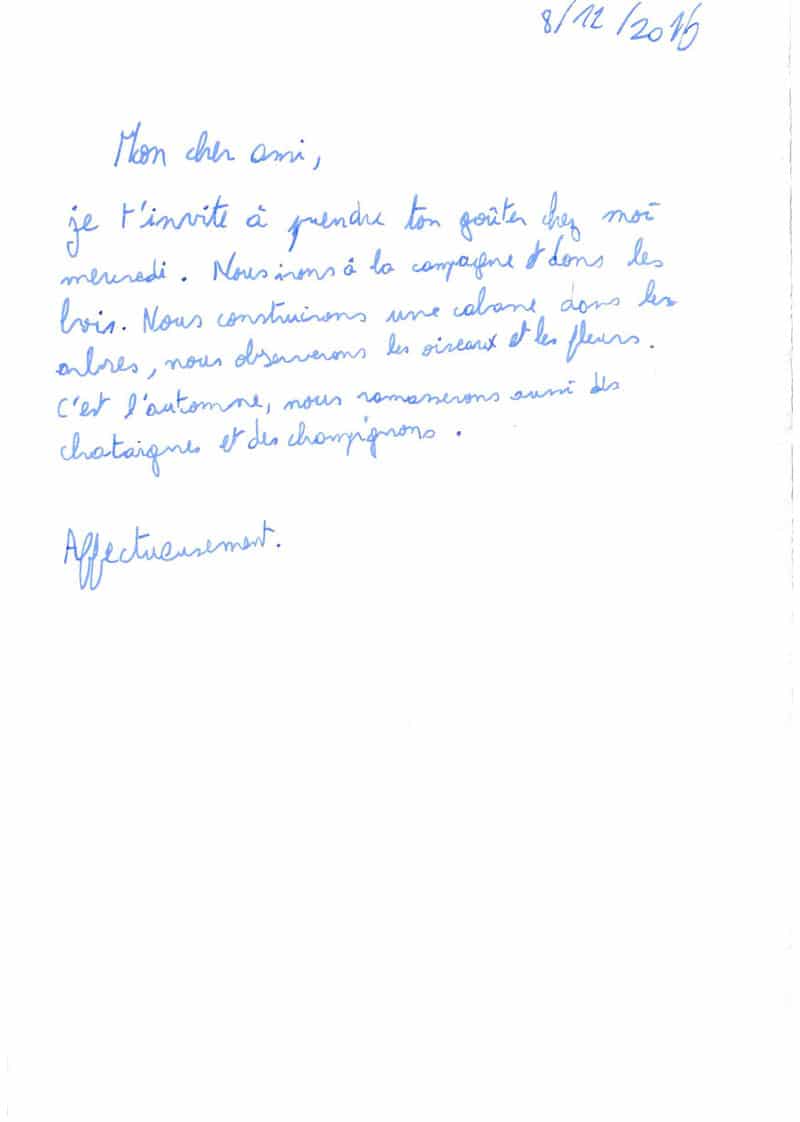 8/12/2016
Mon cher ami,
je t'invite à prendre ton goûter chez moi
mercredi. Nous irons à la campagne et dans les
bois. Nous construirons une cabane dans les
arbres, nous observerons les oiseaux et les fleurs.
C'est l'automne, nous ramasserons aussi des
chataignes et des champignons.
Affectueusement.